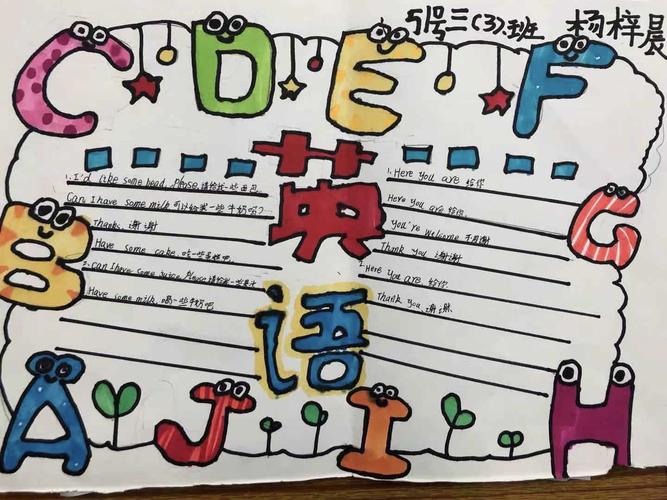 51号三(3).班 杨梓晨
C D E F
英语
1. I'd like some head, Please 请给我一些面包
Can I have some milk 可以给我一些牛奶吗?
Thank、谢谢
Have some cake. 吃一些蛋糕吧
2. Can I have some juice, Please
Have some milk, 喝一些牛奶吧
1. Here you are 给你
Here you are 给你
You're welcome 不用谢
Thank you 谢谢
2. Here you are. 给你
Thank you、谢谢
B
G
A J I H